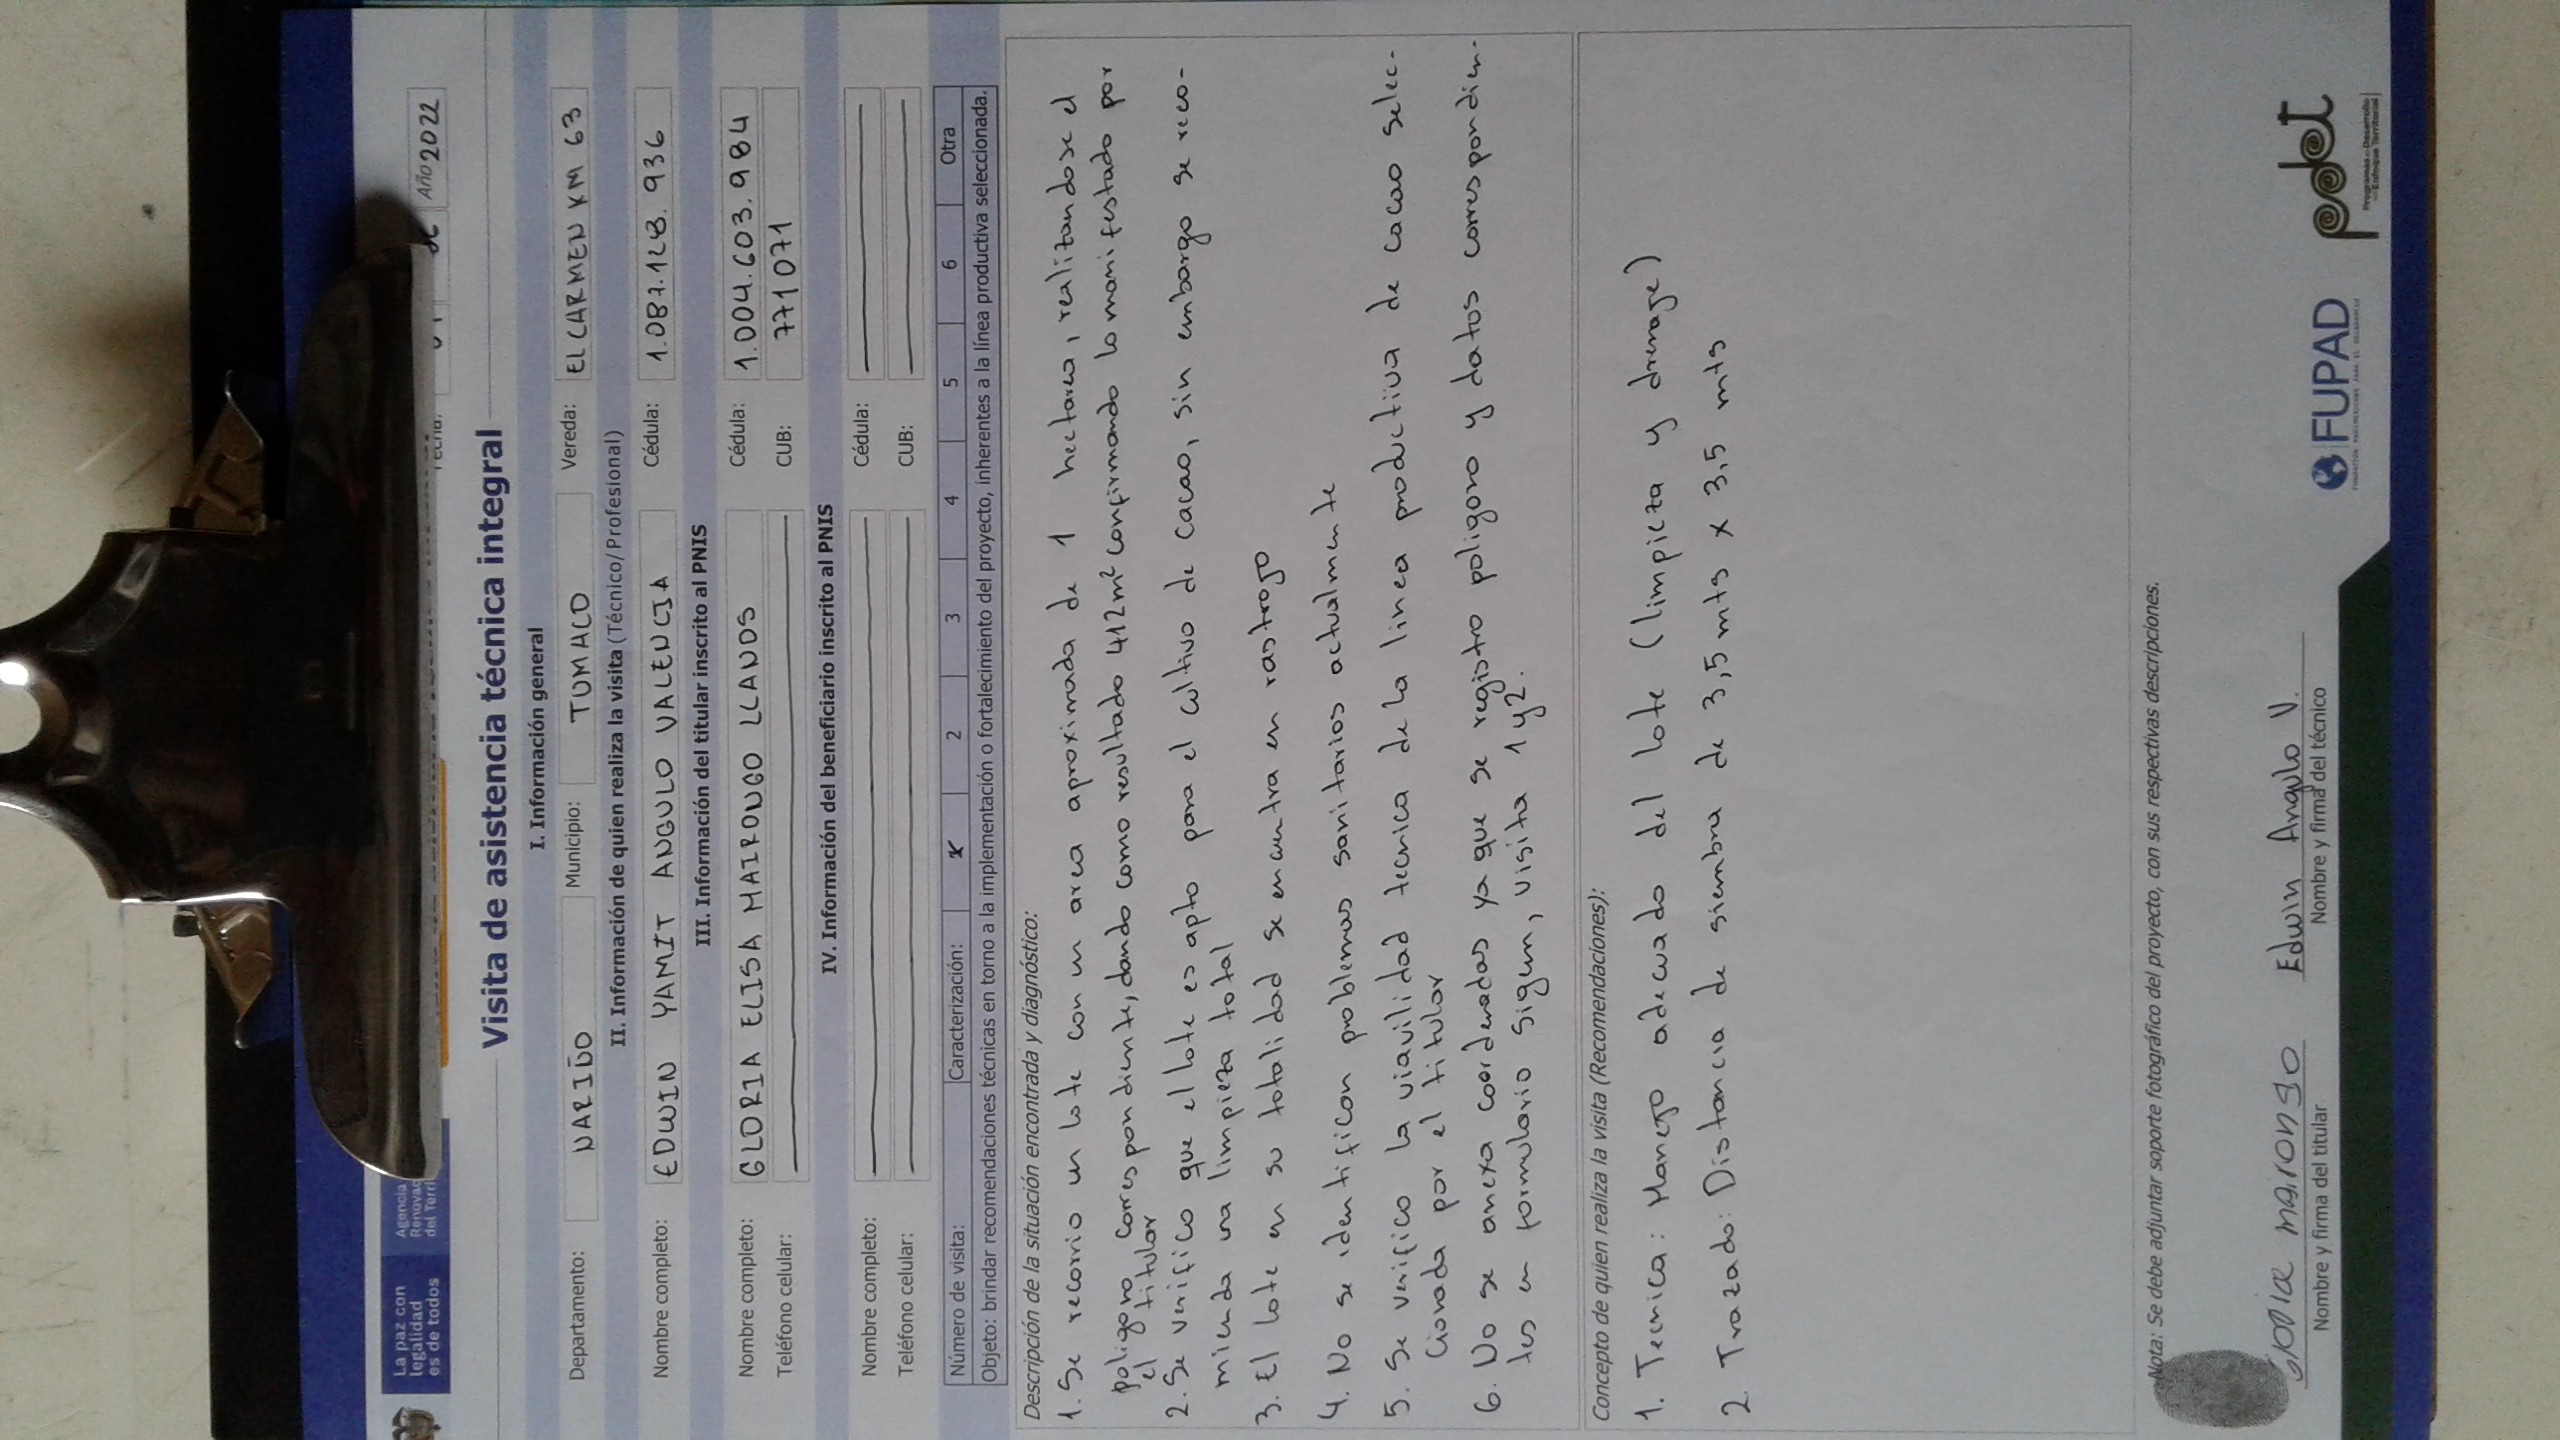 La paz con
legalidad
es de todos
Agencia
Renovac
del Terri
Año 2022
Visita de asistencia técnica integral
I. Información general
Departamento: NARIÑO Municipio: TUMACO Vereda: EL CARMEN KM 63
II. Información de quien realiza la visita (Técnico/Profesional)
Nombre completo: EDWIN YAMIT ANGULO VALENCIA Cédula: 1.087.128.936
III. Información del titular inscrito al PNIS
Nombre completo: GLORIA ELISA MAIRONGO LLANOS Cédula: 1.004.603.984
Teléfono celular: CUB: 771071
IV. Información del beneficiario inscrito al PNIS
Nombre completo: Cédula:
Teléfono celular: CUB:
Número de visita: Caracterización: X 2 3 4 5 6 Otra
Objeto: brindar recomendaciones técnicas en torno a la implementación o fortalecimiento del proyecto, inherentes a la línea productiva seleccionada.
Descripción de la situación encontrada y diagnóstico:
1. Se recorrio un lote con un area aproximada de 1 hectarea, realizandose el
poligono correspondiente, dando como resultado 412m² confirmando lo manifestado por
el titular
2. Se verifico que el lote es apto para el cultivo de cacao, sin embargo se reco-
mienda una limpieza total
3. El lote en su totalidad se encuentra en rastrojo
4. No se identifican problemas sanitarios actualmente
5. Se verifico la viavilidad tecnica de la linea productiva de cacao selec-
cionada por el titular
6. No se anexa coordenadas ya que se registro poligono y datos correspondien-
tes en formulario sigem, visita 1 y 2.
Concepto de quien realiza la visita (Recomendaciones):
1. Tecnica: Manejo adecuado del lote (limpieza y drenaje)
2. Trazado: Distancia de siembra de 3,5 mts x 3,5 mts
Nota: Se debe adjuntar soporte fotográfico del proyecto, con sus respectivas descripciones.
gloria mairongo
Nombre y firma del titular
Edwin Angulo V.
Nombre y firma del técnico
FUPAD
pdet
Programas de Desarrollo
con Enfoque Territorial